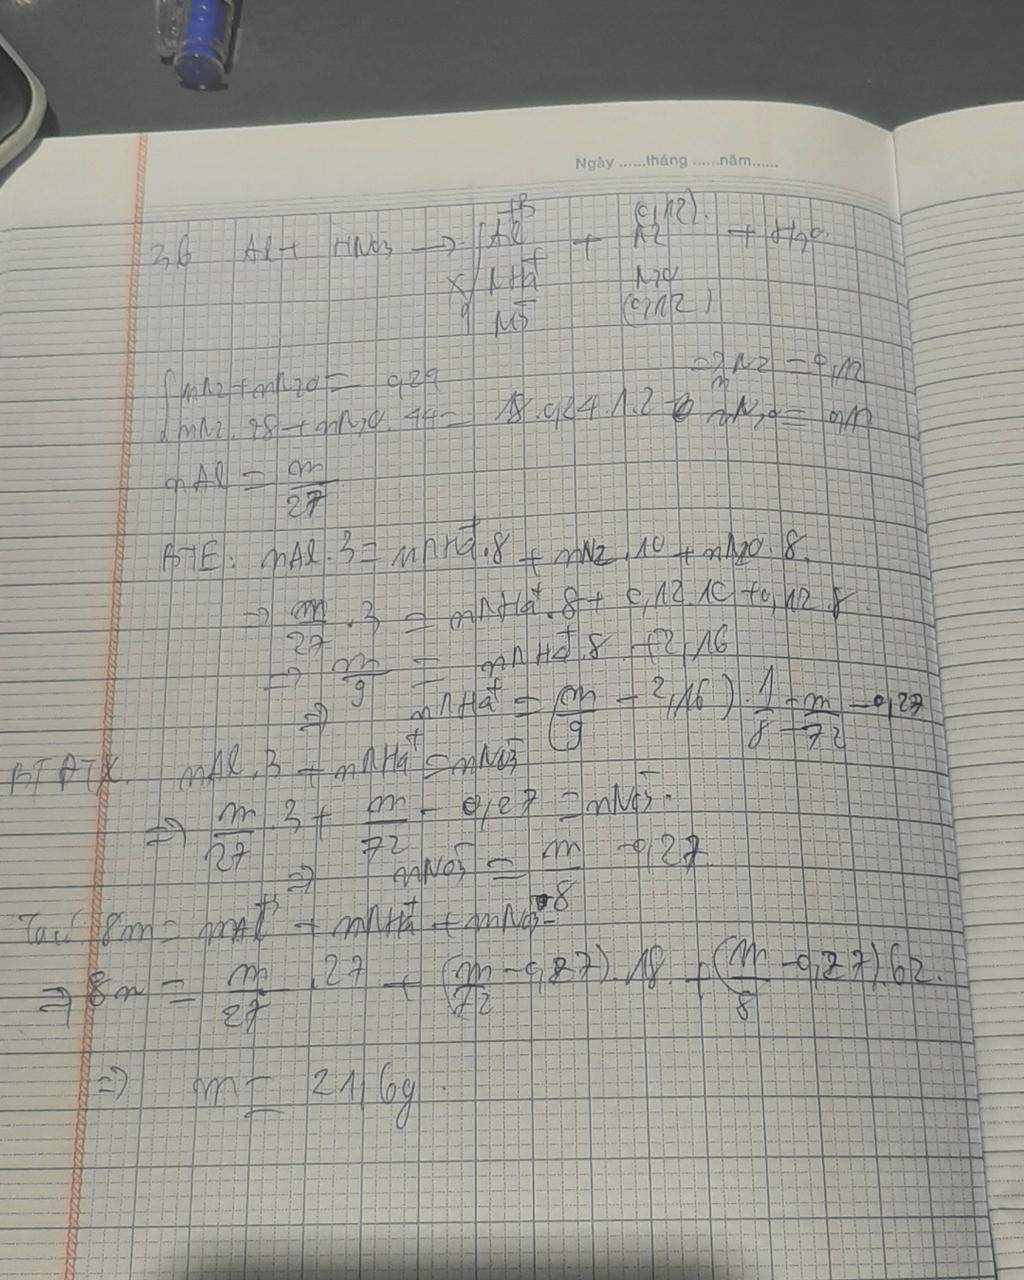 Ngày ......tháng ......năm......
36 Al + HNO3 → Al+3 + (0,12). N2 + H2O.
x NH4+ N2O
y NO3- (0,12)
{ nN2 + nN2O = 0,24 => nN2 = 0,12
nN2. 28 + nN2O. 44 = 18.0,24.1.2 nN2O = 0,12
nAl = m/27
BTE: nAl. 3 = nNH4+.8 + nN2.10 + nN2O.8.
=> m/27 .3 = nNH4+.8 + 0,12.10 + 0,12.8.
=> m/9 = nNH4+.8 + 2,16
=> nNH4+ = (m/9 - 2,16).1/8 = m/72 - 0,27
BTĐTX. nAl.3 + nNH4+ = nNO3-
=> m/27 .3 + m/72 - 0,27 = nNO3-.
=> nNO3- = m/8 - 0,27.
Ta có 8m = mAl+3 + mNH4+ + mNO3-
=> 8m = m/27 .27 + (m/72 - 0,27).18 + (m/8 - 0,27).62.
=> m = 21,6g.